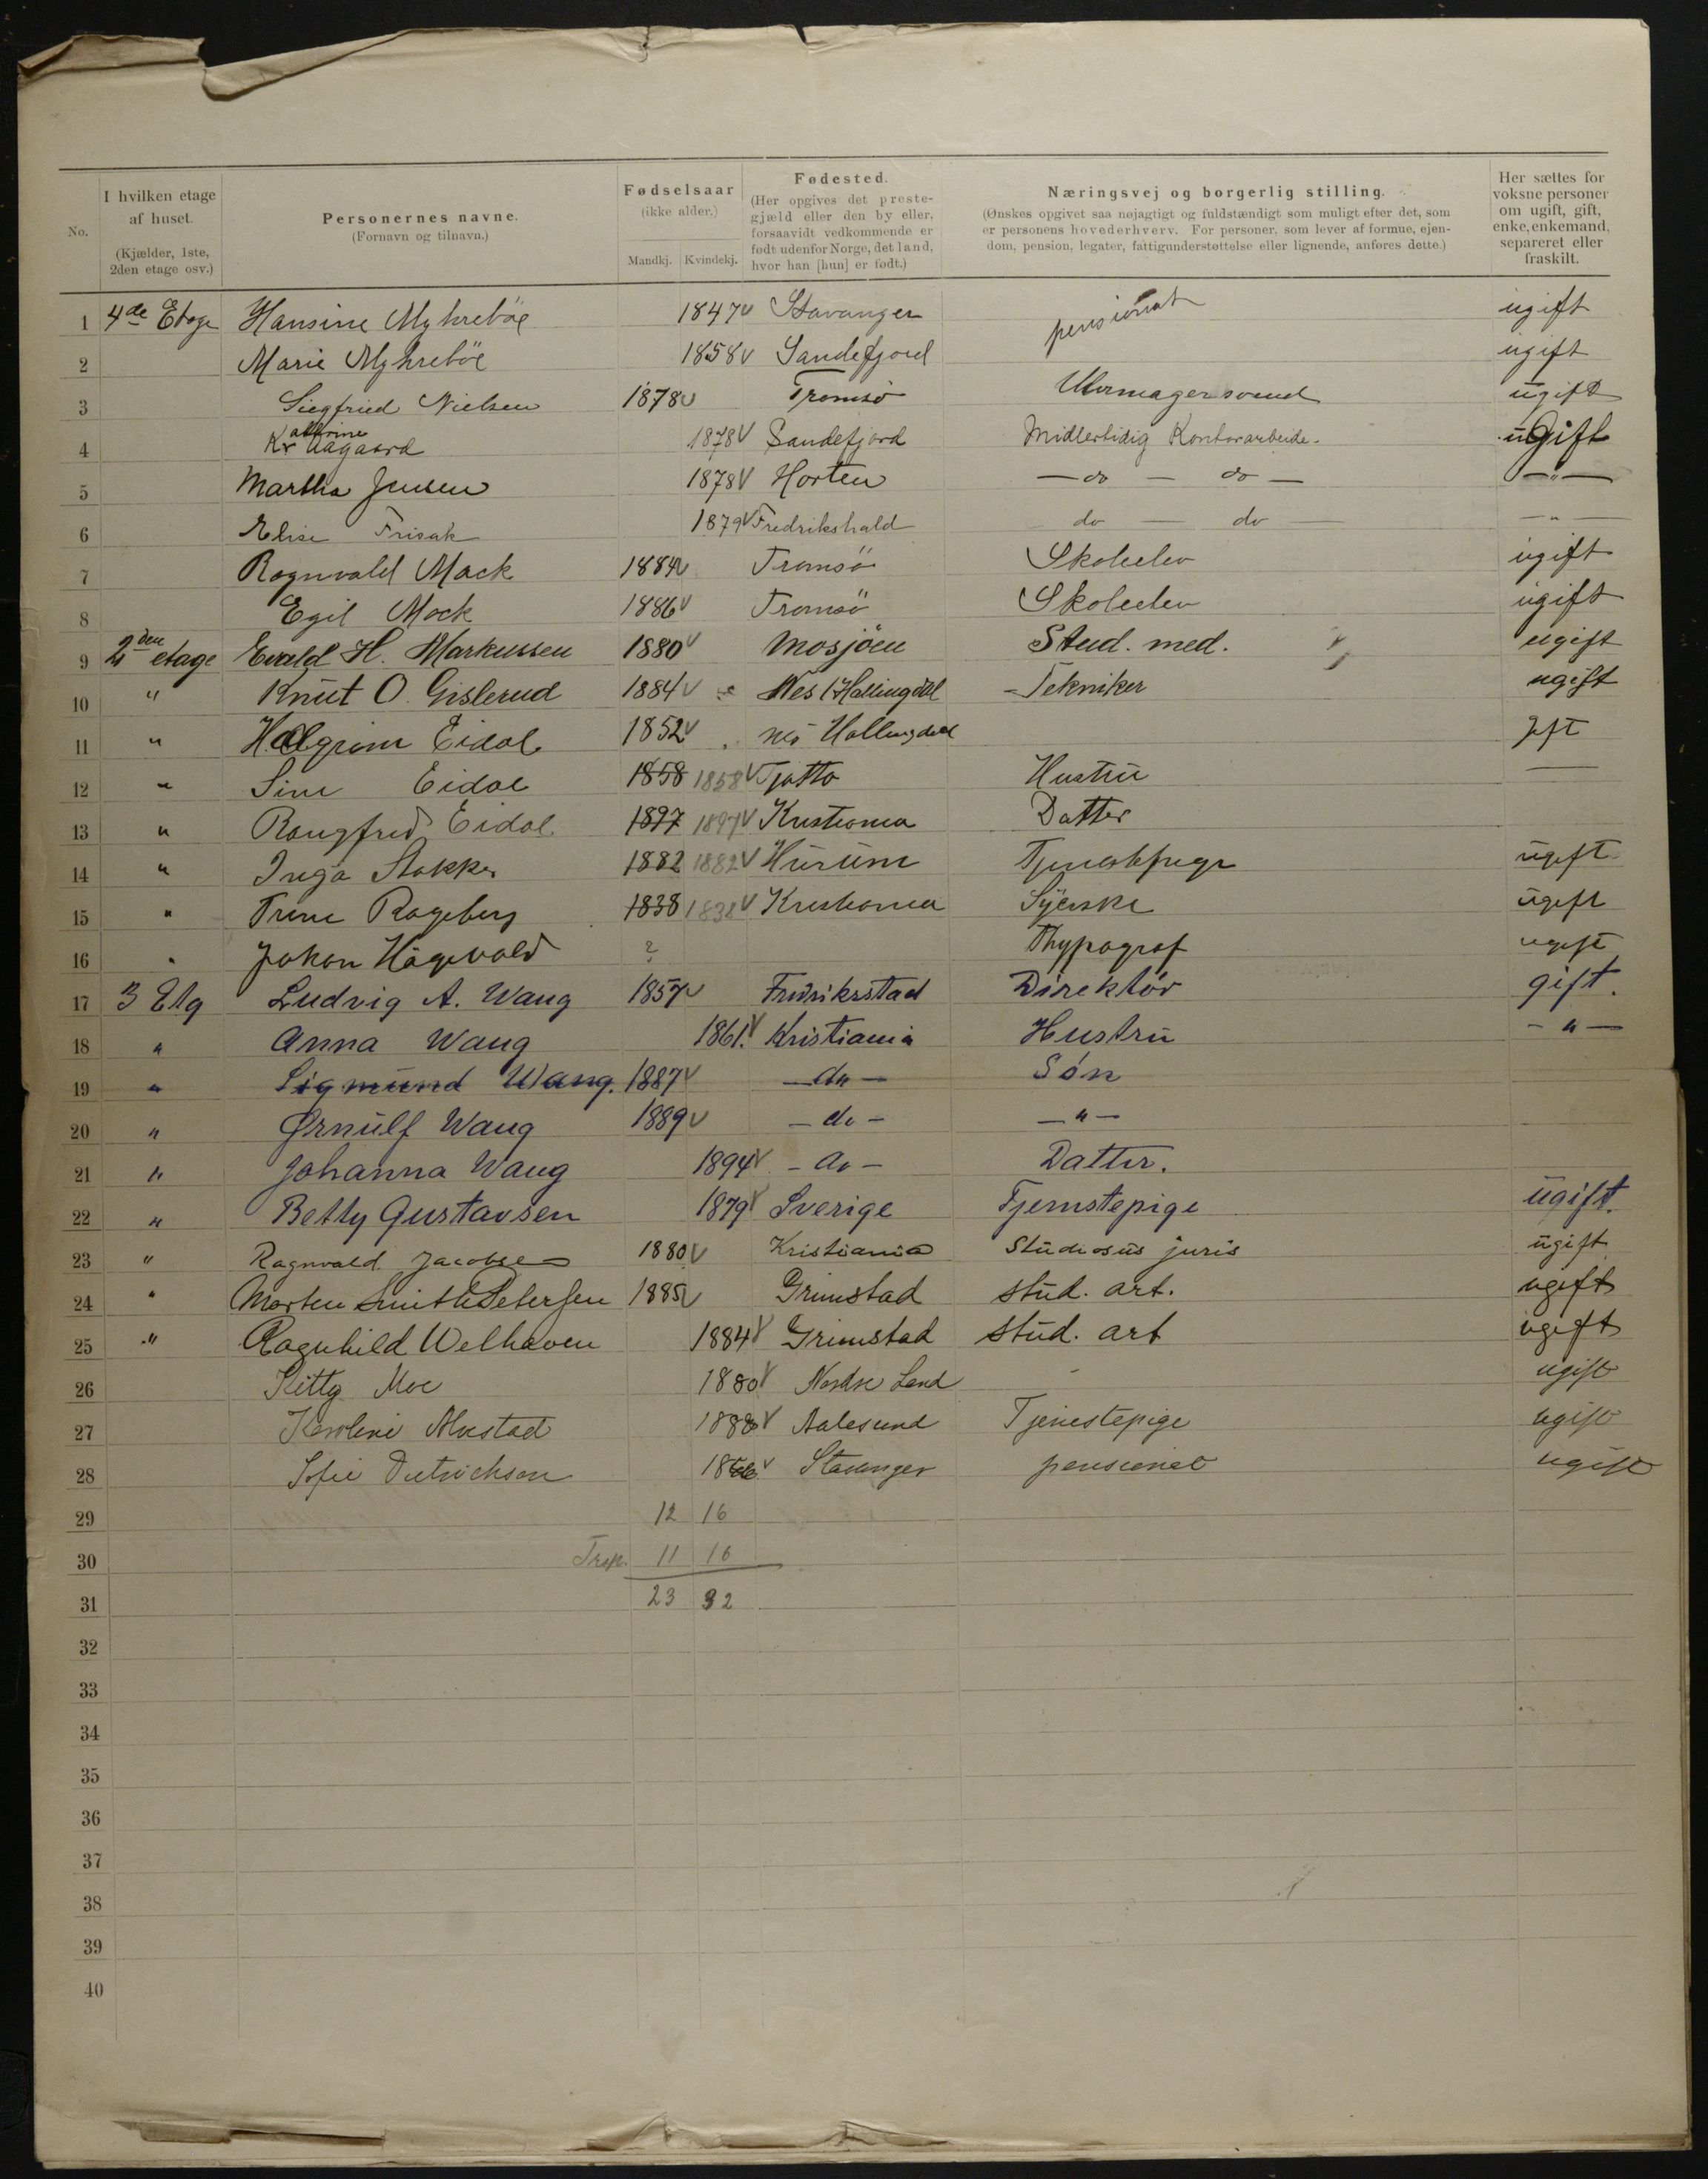 No.
I hvilken etage af huset.
(Kjælder, 1ste, 2den etage osv.)
Personernes navne.
(Fornavn og tilnavn.)
Fødselsaar
(ikke alder.)
Mandkj. Kvindekj.
Fødested.
(Her opgives det prestegjæld eller den by eller, forsaavidt vedkommende er født udenfor Norge, det land, hvor han [hun] er født.)
Næringsvej og borgerlig stilling.
(Ønskes opgivet saa nøjagtigt og fuldstændigt som muligt efter det, som er personens hovederhverv. For personer, som lever af formue, ejendom, pension, legater, fattigunderstøttelse eller lignende, anføres dette.)
Her sættes for voksne personer om ugift, gift, enke, enkemand, separeret eller fraskilt.
1 4de Etage Hansine Myhreböe 1847 Stavanger pensionat ugift
2 Marie Myhreböe 1858 Sandefjord ugift
3 Siegfried Nielsen 1878 Tromsø Uhrmagersvend ugift
4 Kathrine Aagaard 1878 Sandefjord Midlertidig Kontorarbeide ugift
5 Martha Jensen 1878 Horten — do — do — — " —
6 Elise Frisak 1879 Fredrikshald do — do — — " —
7 Ragnvald Mack 1884 Tromsö Skoleelev ugift
8 Egil Mack 1886 Tromsö Skoleelev ugift
9 2den etage Evald H. Markussen 1880 Mosjöen Stud. med. ugift
10 " Knut O. Gislerud 1884 Nes Hallingdal Tekniker ugift
11 " Halgrim Eidal 1852 Hallingdal gift
12 " Sine Eidal 1858 1858 Tjøtta Hustru —
13 " Eidal 1897 1897 Kristiania Datter
14 " Inga Stokke 1882 1882 Hurum ugift
15 " Trine Rogeberg 1838 1838 Kristiania Syerske ugift
16 " Johan ? Thypograf ugift
17 3 Etg Ludvig A. Waug 1857 Fredriksstad Direktör gift.
18 " Anna Waug 1861. Kristiania Hustru - " -
19 " Sigmund Waug. 1887 - do - Sön
20 " Ørnulf Waug 1889 - do - - " -
21 " Johanna Waug 1894 - do - Datter.
22 " Betty Gustavsen 1879 Sverige Tjenstepige ugift.
23 " Ragnvald Jacobsen 1880 Kristiania Studiosus juris ugift
24 " Morten Smith Petersen 1885 Grimstad stud. art. ugift
25 " Ragnhild Welhaven 1884 Grimstad stud. art ugift
26 Kitty Moe 1880 Nordre Land - ugift
27 Karoline Alvestad Aalesund Tjenestepige ugift
28 Sofie Dietrichson Stavanger pensionat ugift
29 12 16
30 Trsp. 11 16
31 23 32
32
33
34
35
36
37
38
39
40